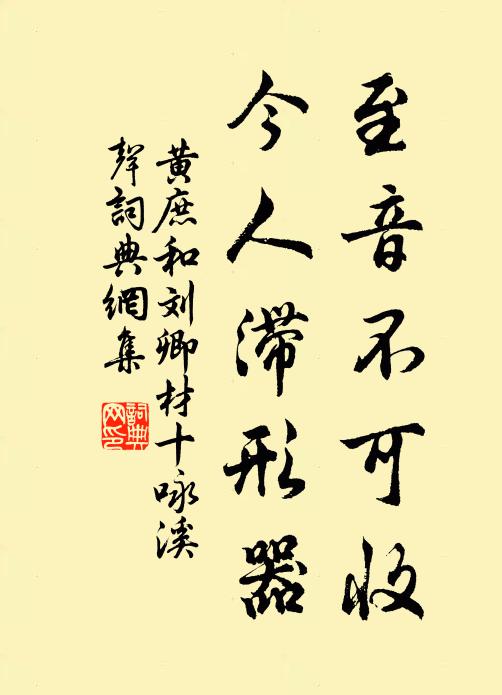 至音不可收
今人滞形器
黄庶和刘卿材十咏溪
声词典網集
詞典
网印